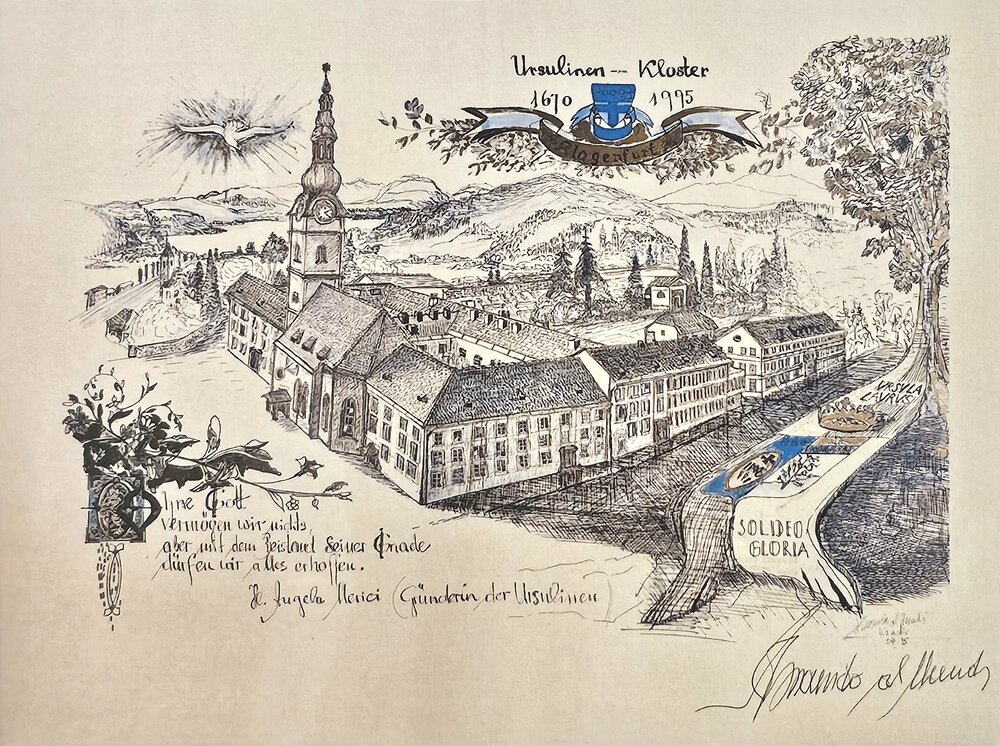 Ursulinen - Kloster
1670 1995
Klagenfurt
URSULA
LAURUS
SOLI DEO
GLORIA
Ohne Gott
vermögen wir nichts,
aber mit dem Beistand Seiner Gnade
dürfen wir alles erhoffen.
Hl. Angela Merici (Gründerin der Ursulinen)